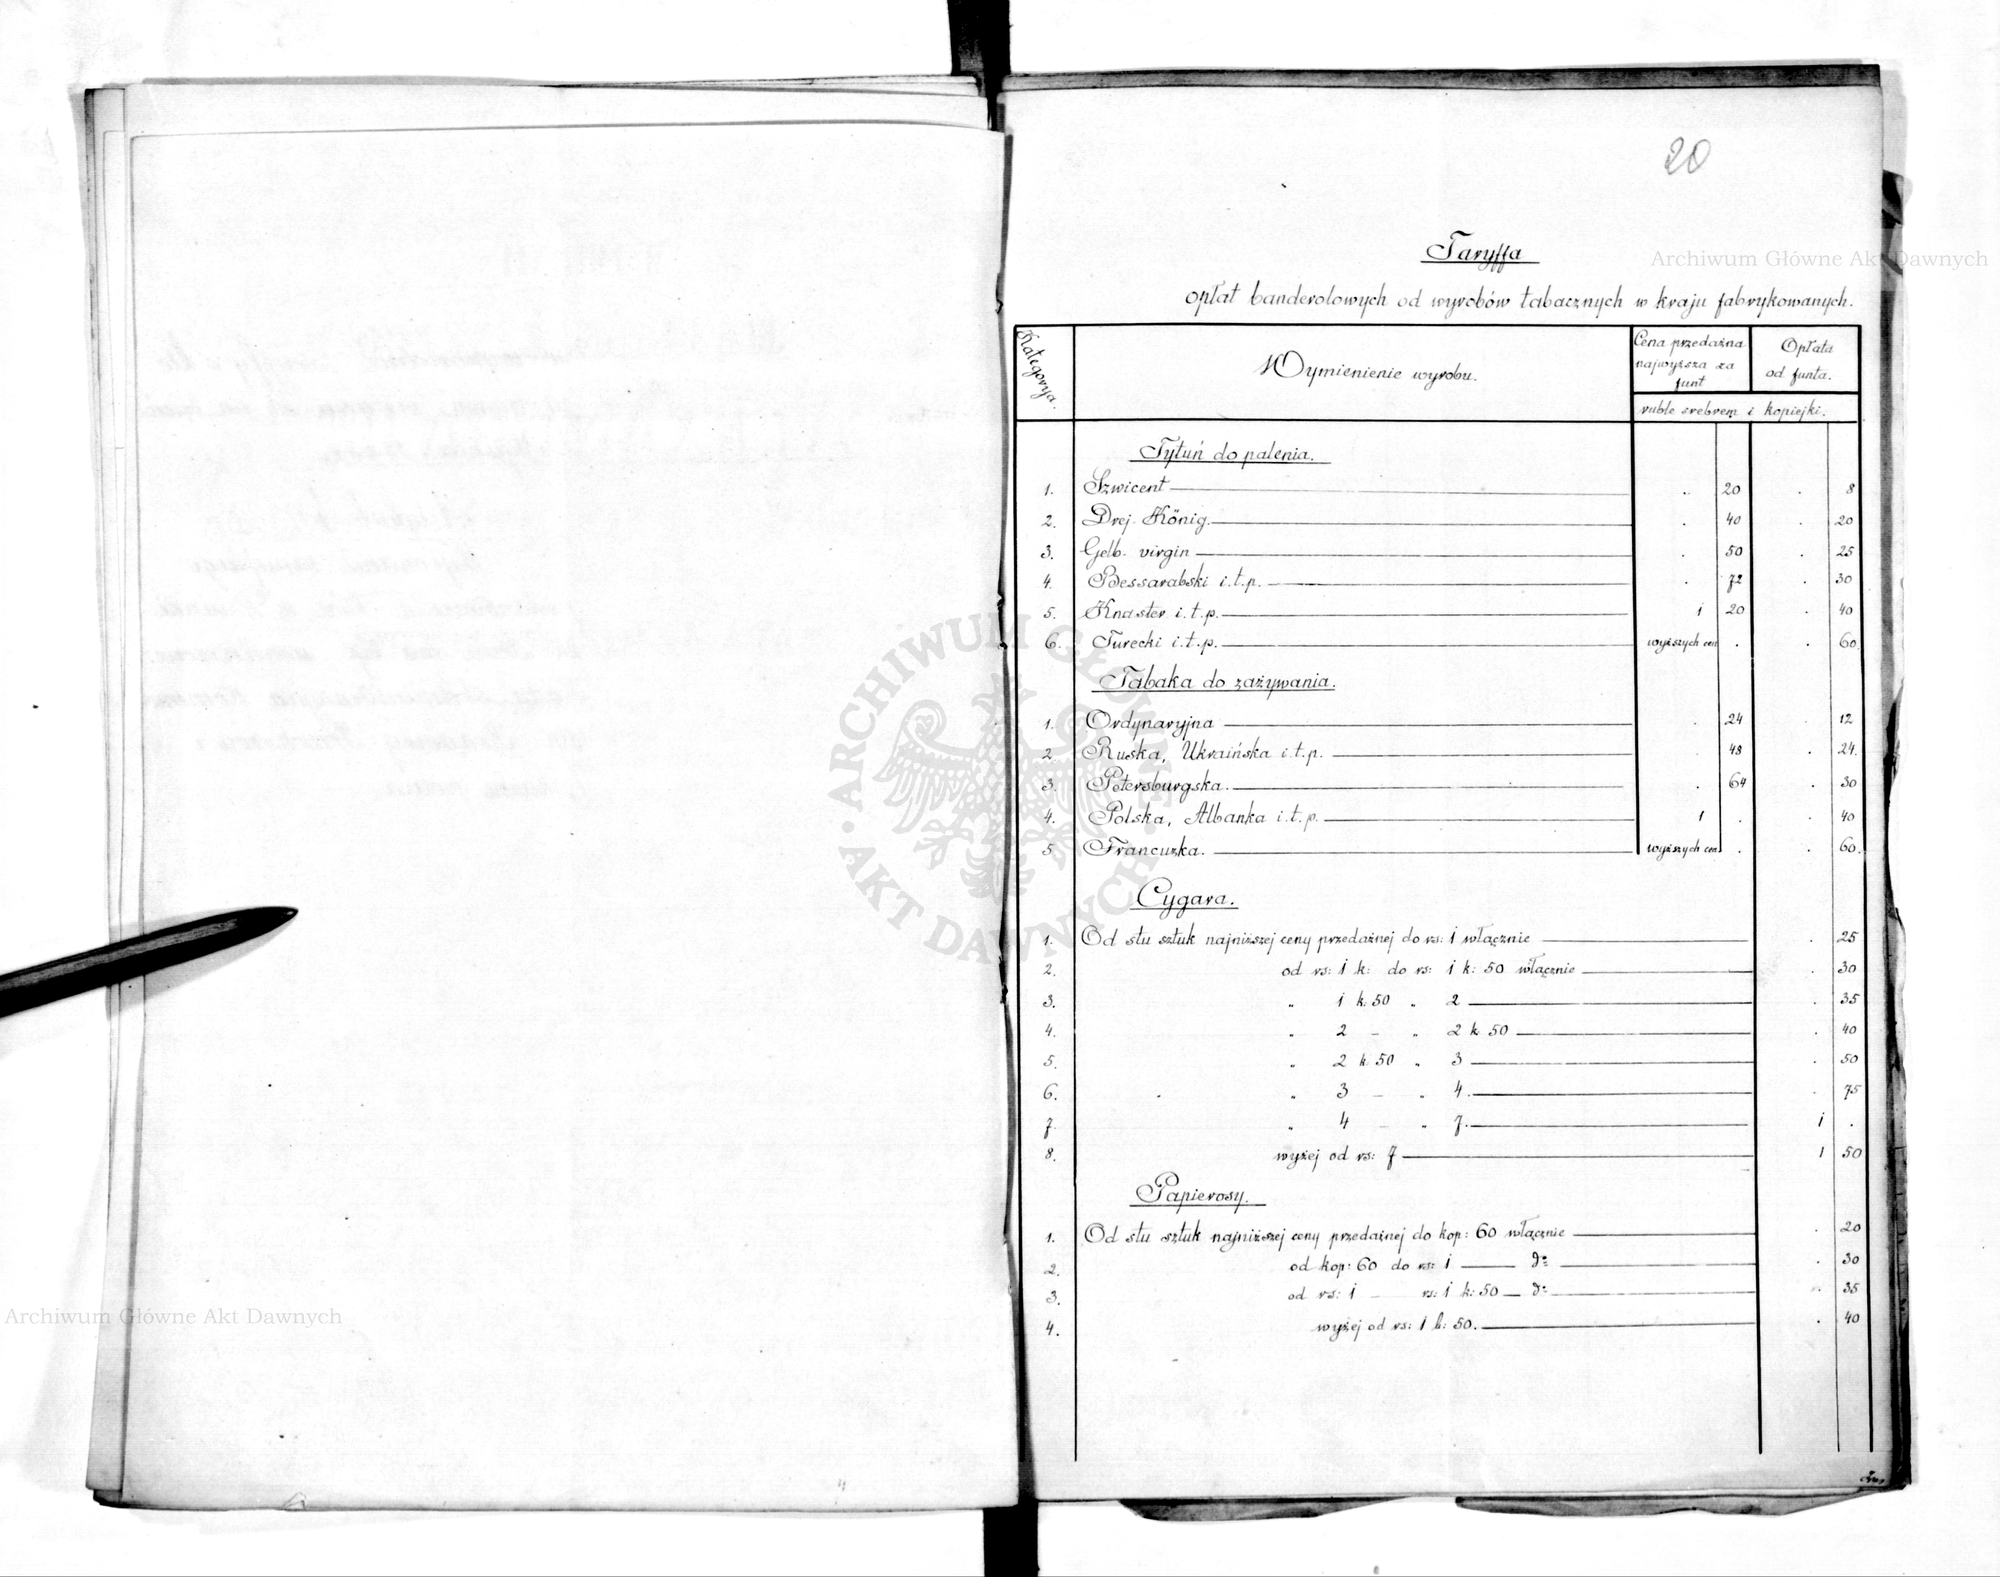 20
Taryffa
opłat banderolowych od wyrobów tabacznych w kraju fabrykowanych.
Kategorya. Wymienienie wyrobu. Cena przedażna najwyższa za funt Opłata od funta.
ruble srebrem i kopiejki.
Tytuń do palenia.
1. Szwicent . 20 . 8
2. Drej König. . 40 . 20
3. Gelb. virgin . 50 . 25
4. Bessarabski i.t.p. . 72 . 30
5. Knaster i.t.p. 1 20 . 40
6. Turecki i.t.p. wyższych cen . . 60
Tabaka do zażywania.
1. Ordynaryjna . 24 . 12
2. Ruska, Ukraińska i.t.p. . 48 . 24.
3. Petersburgska. . 64 . 30
4. Polska, Albanka i.t.p. 1 . . 40
5. Francuzka. wyższych cen . . 60.
Cygara.
1. Od stu sztuk najniższej ceny przedażnej do rs: 1 włącznie . 25
2. od rs: 1 k: do rs: 1 k: 50 włącznie . 30
3. „ 1 k: 50 „ 2 . 35
4. „ 2 – „ 2 k 50 . 40
5. „ 2 k. 50 „ 3 . 50
6. „ 3 – „ 4. . 75
7. „ 4 – „ 7. 1 .
8. wyżej od rs: 7 1 50
Papierosy.
1. Od stu sztuk najniższej ceny przedażnej do kop: 60 włącznie . 20
2. od kop: 60 do rs: 1 — do . 30
3. od rs: 1 – rs: 1 k: 50 — do . 35
4. wyżej od rs: 1 k: 50. . 40
Archiwum Główne Akt Dawnych
Archiwum Główne Akt Dawnych
ARCHIWUM GŁÓWNE AKT DAWNYCH